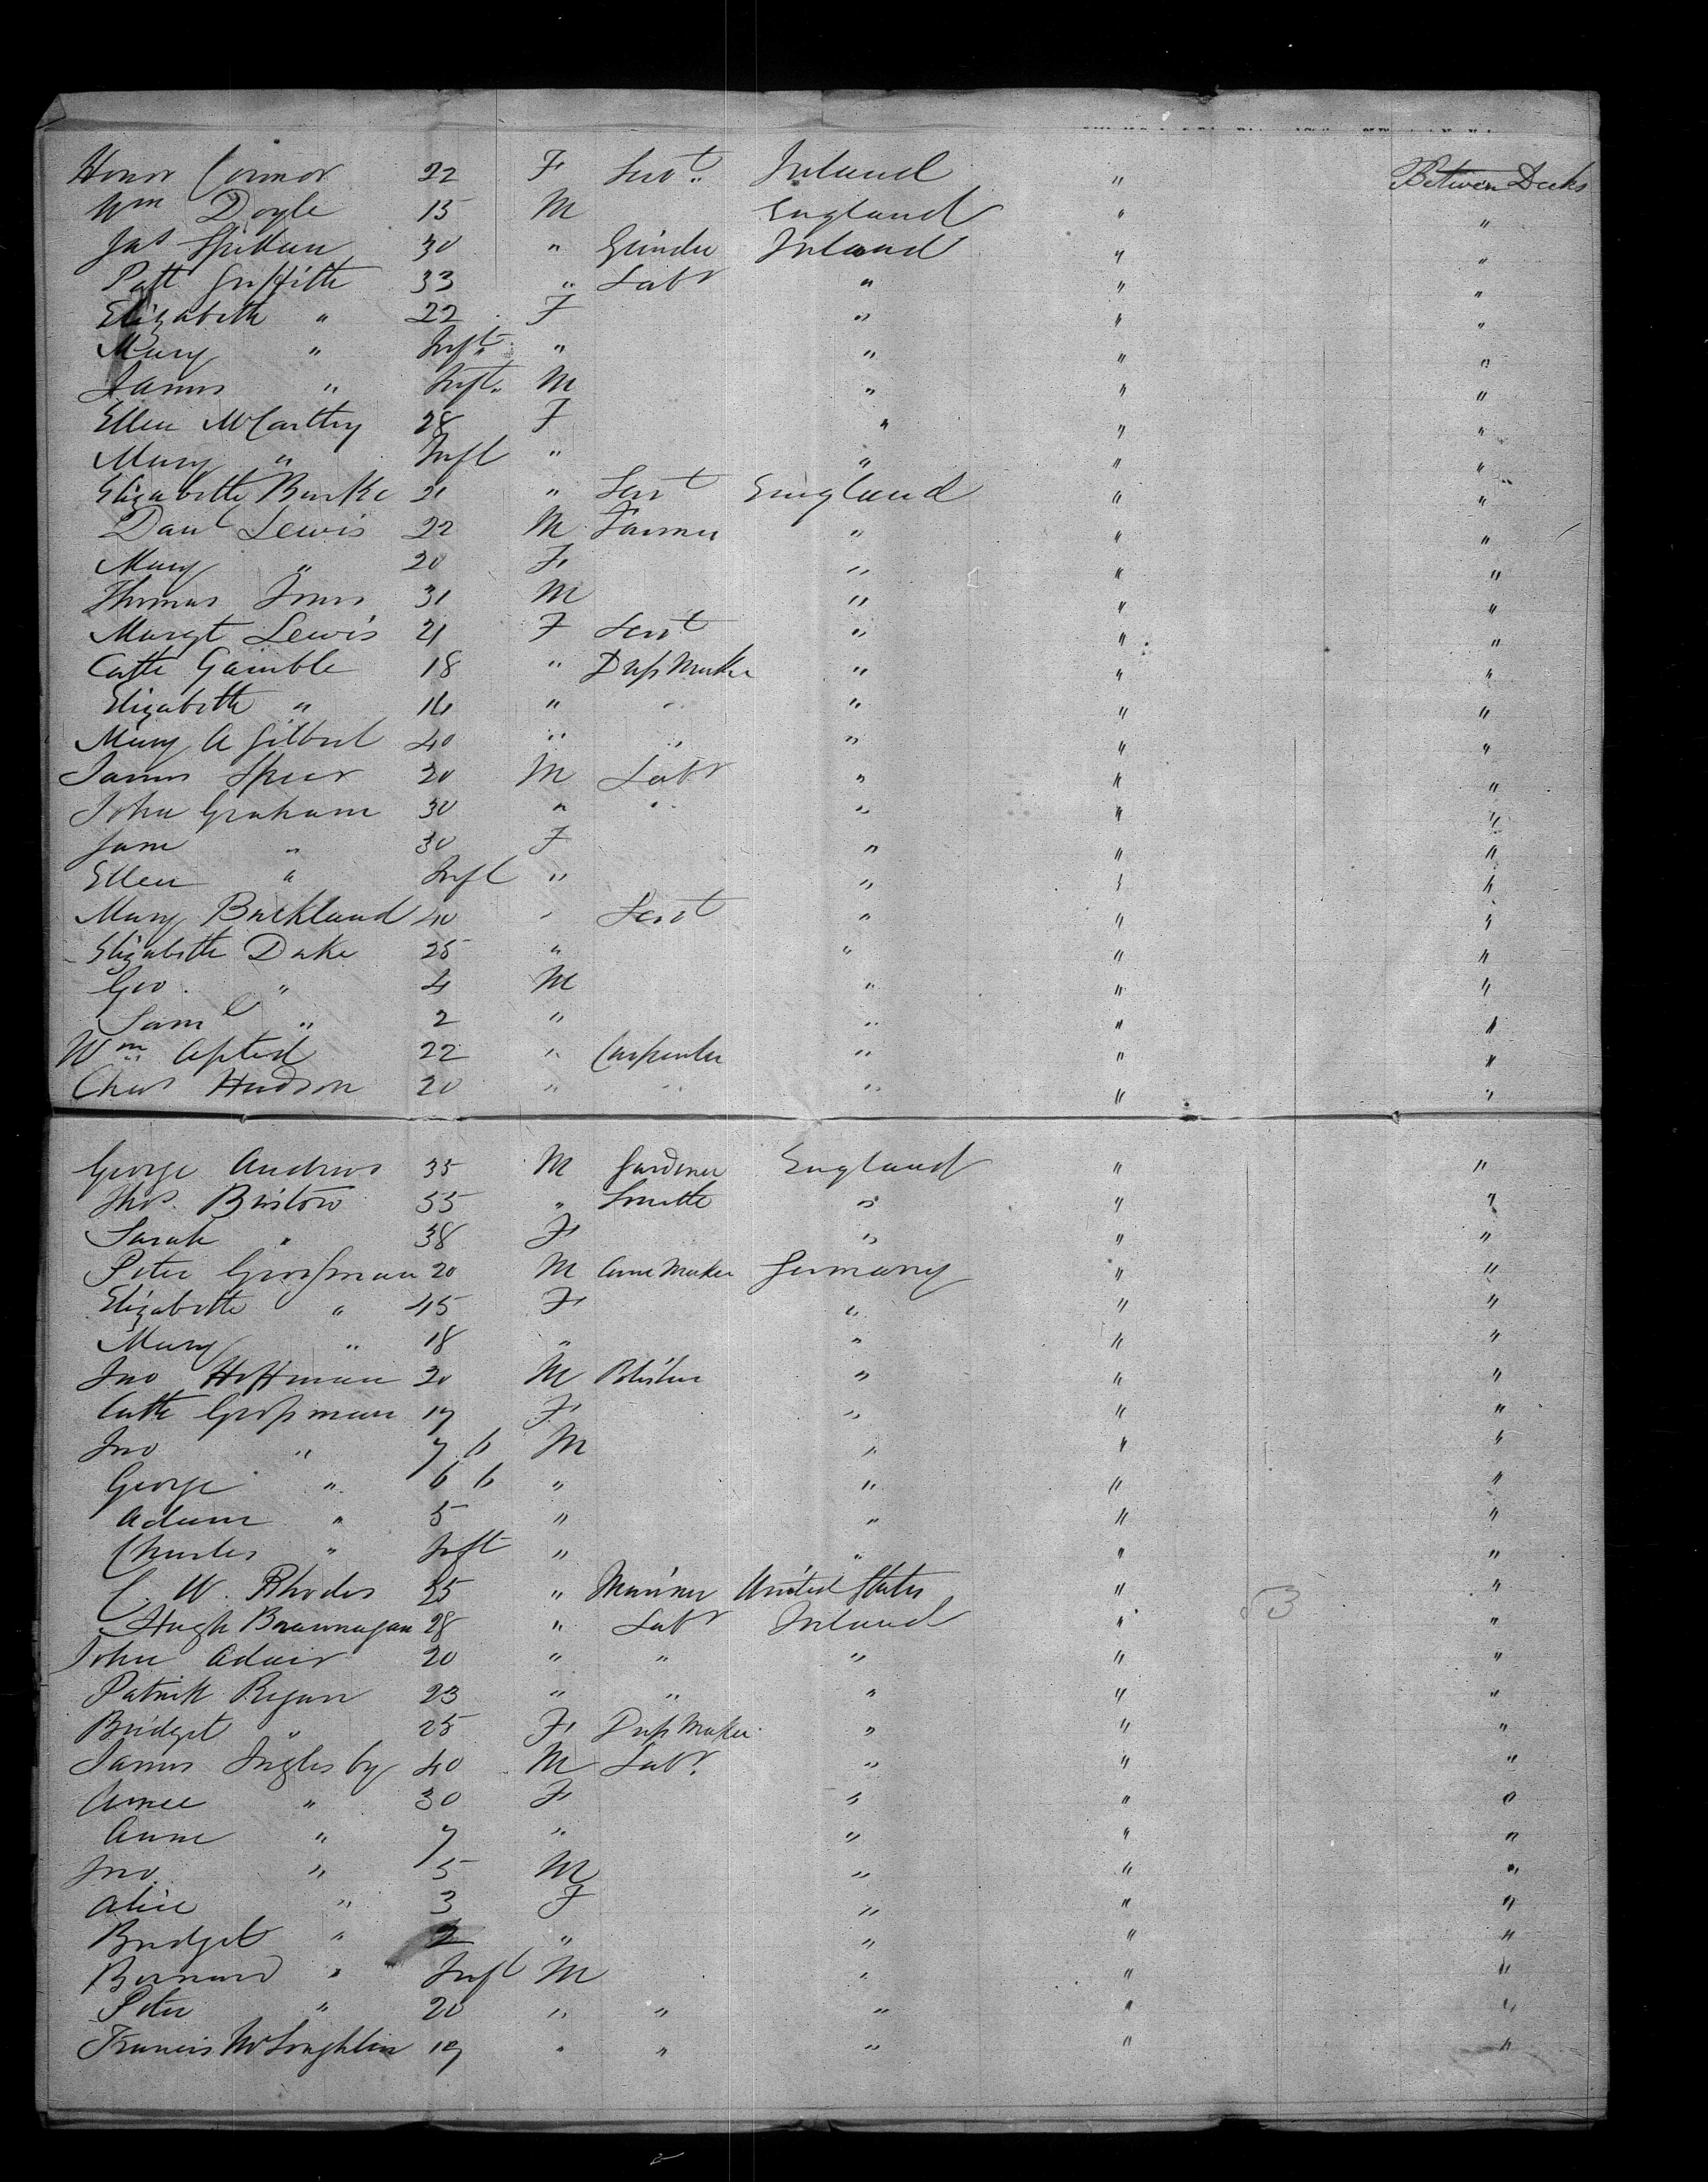 Honor Connor 22 F Servt. Ireland " Between Decks
Wm Doyle 15 M England " "
Jas 30 " Grinder Ireland " "
Patt Griffith 33 " Labr " " "
Elizabeth " 22 F " " "
Mary " Inft. " " " "
James " Inft. M " " "
Ellen McCarthy 28 F " " "
Mary " Inft " " " "
Elizabeth Burke 21 " Servt England " "
Danl Lewis 22 M Farmer " " "
Mary " 20 F " " "
Thomas Jones 31 M " " "
Margt Lewis 21 F Servt " " "
Cath Gamble 18 " Dress Maker " " "
Elizabeth " 16 " " " " "
Mary A Gilbert 40 " " " " "
James Speer 20 M Labr " " "
John Graham 30 " " " " "
Jane " 30 F " " "
Ellen " Inft " " " "
Mary Buckland 40 " Servt " " "
Elizabeth Dake 25 " " " "
Geo. " 4 M " " "
Saml " 2 " " " "
Wm Apted 22 " Carpenter " " "
Chas Hudson 20 " " " " "
George Andrews 35 M Gardener England " "
Thos. Bristow 35 " Smith " " "
Sarah " 38 F " " "
Peter Grossman 20 M Maker Germany " "
Elizabeth " 45 F " " "
Mary " 18 " " " "
Jno Hoffman 20 M " " "
Cath Grossman 17 F " " "
Jno " 7 6 M " " "
George " 6 6 " " " "
Adam " 5 " " " "
Charles " Inft " " " "
C. W. Rhodes 35 " Mariner United States " "
Hugh Brannagan 28 " Labr Ireland " "
John Adair 20 " " " " "
Patrick Regan 23 " " " " "
Bridget " 25 F Dress Maker " " "
James Inglesby 40 M Labr. " " "
" 30 F " " "
Anne " 7 " " " "
Jno. " 5 M " " "
Alice " 3 F " " "
Bridget " 2 " " " "
Bernard " Inft M " " "
Peter " 20 " " " " "
Francis McLoughlin 19 " " " " "